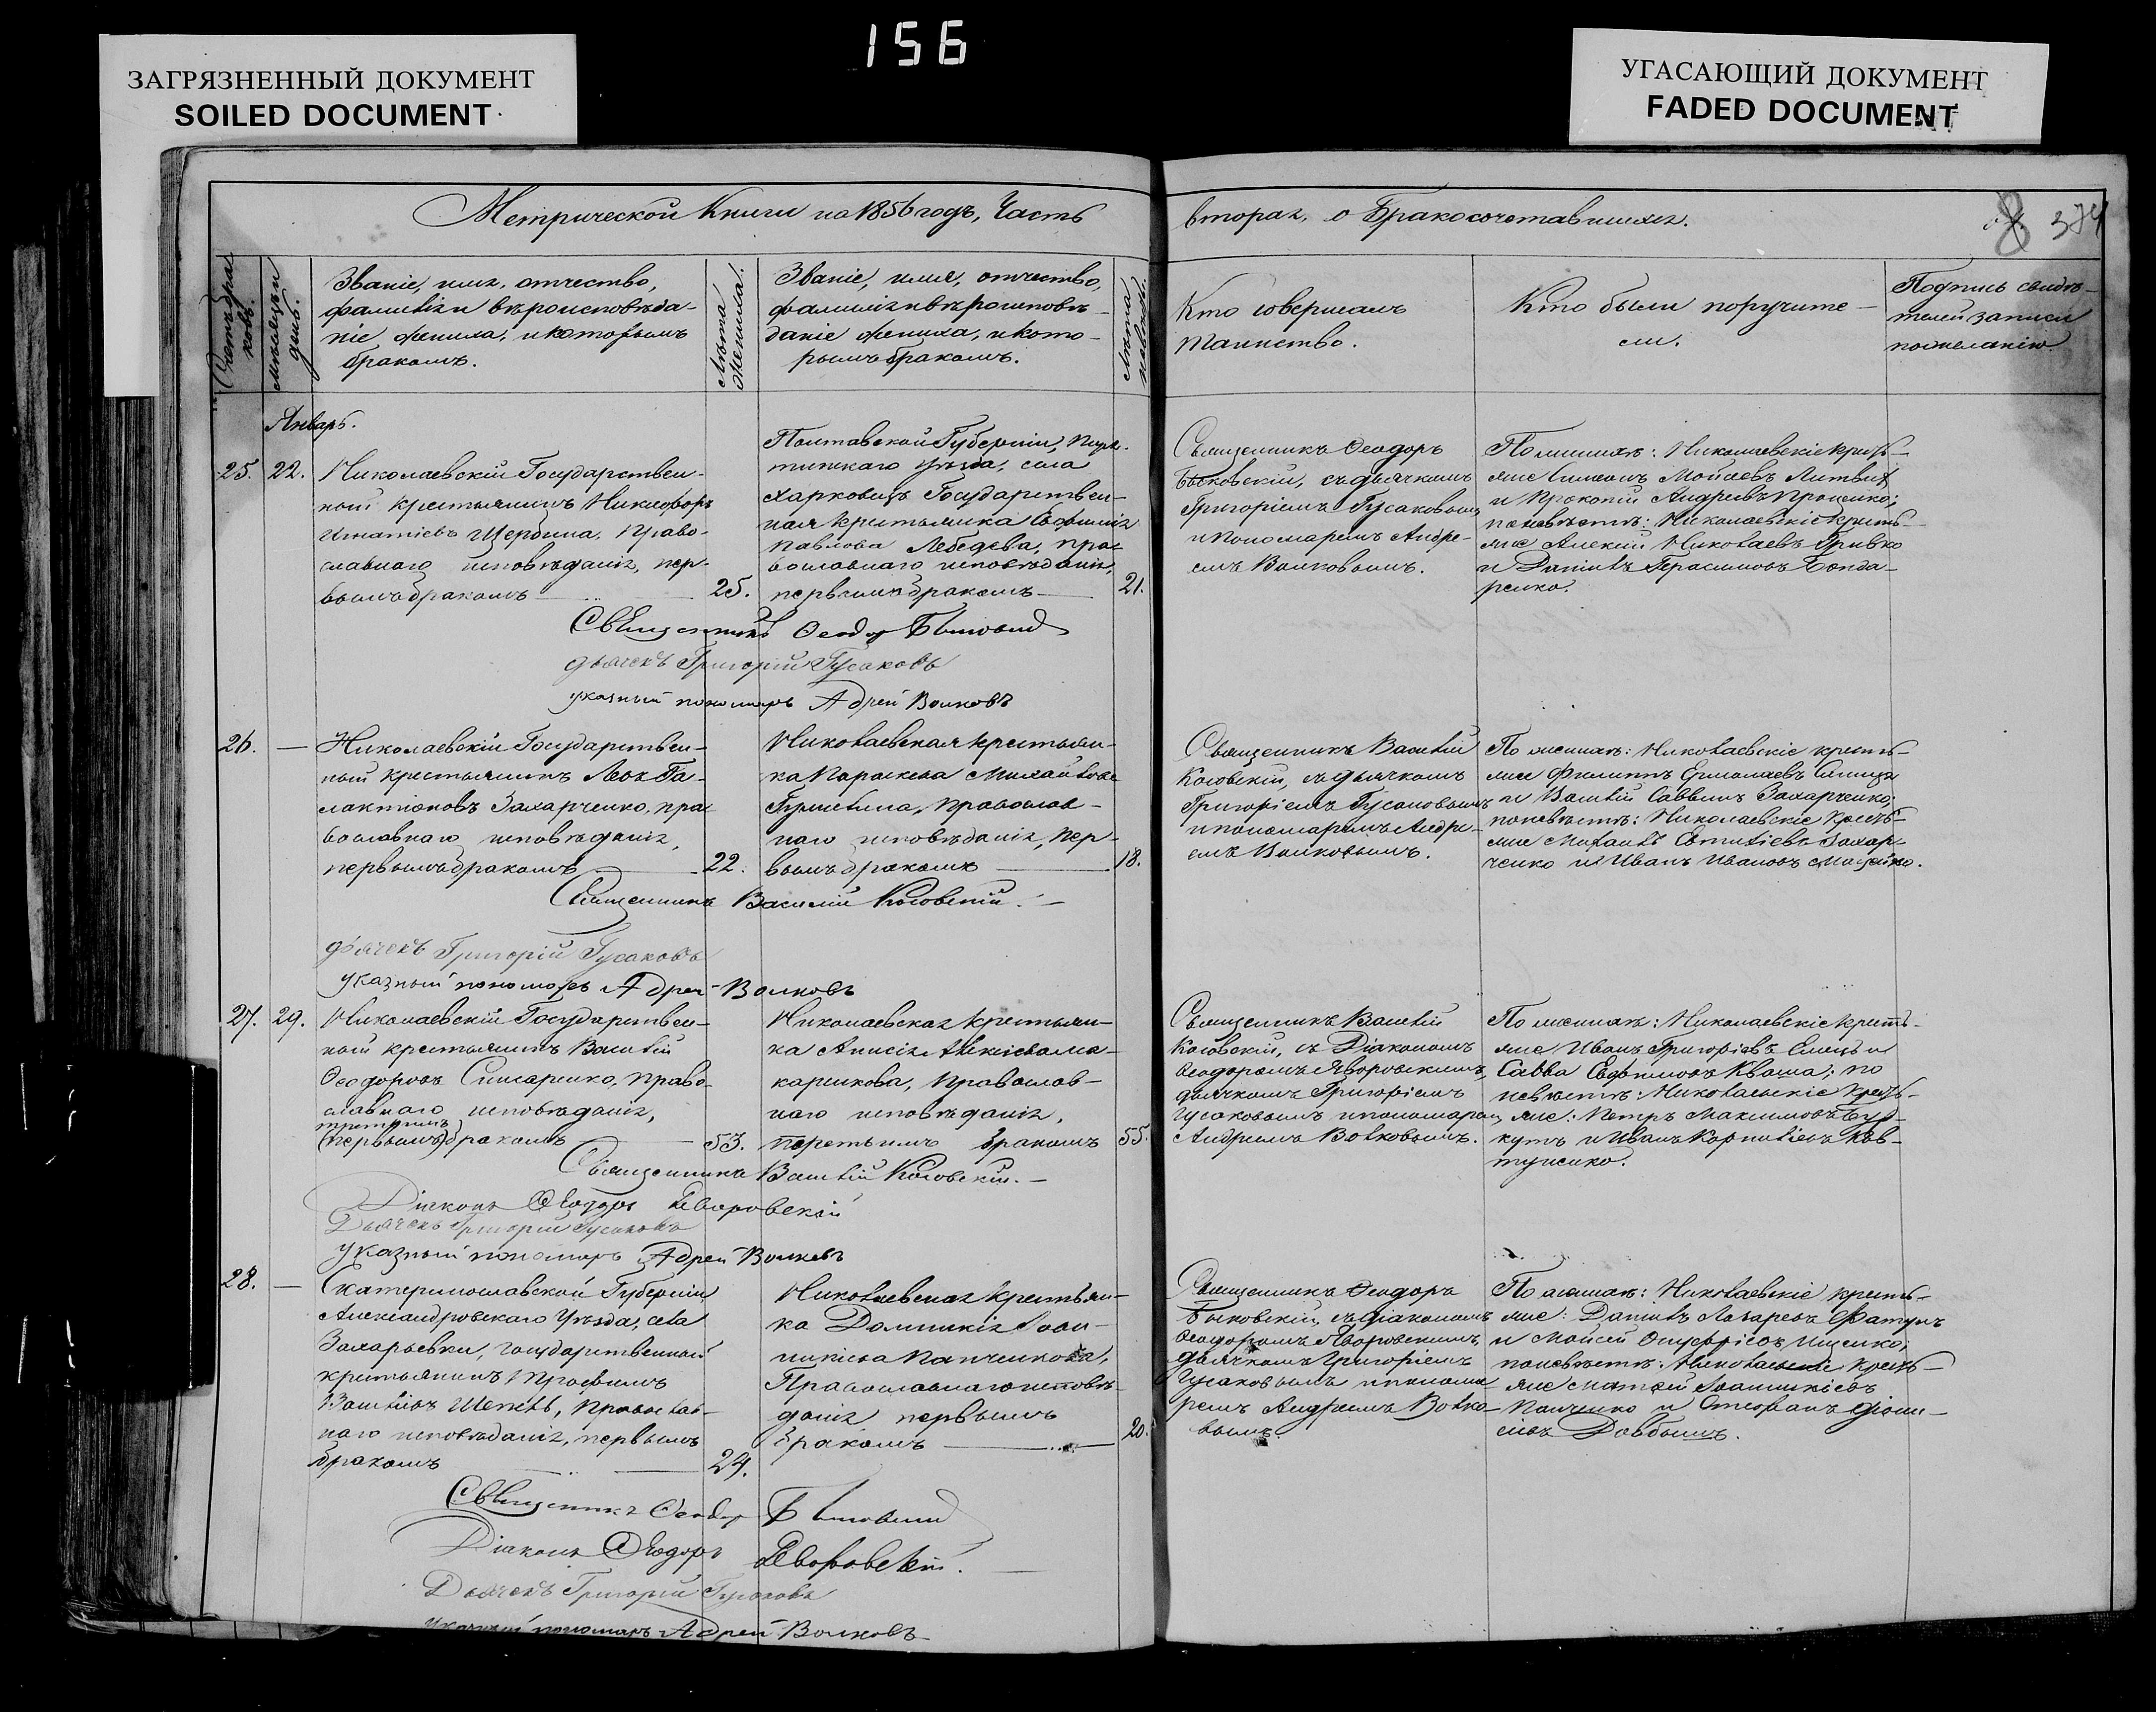 156
ЗАГРЯЗНЕННЫЙ ДОКУМЕНТ
SOILED DOCUMENT
УГАСАЮЩИЙ ДОКУМЕНТ
FADED DOCUMENT
Метрической Книги на 1856 годъ, Часть
вторая, о Бракосочетавшихся.
374
Счетъ браковъ.
Мѣсяцъ и день.
Званіе, имя, отчество,
фамилія и вѣроисповѣда-
ніе жениха, и которымъ
бракомъ.
Лѣта жениха.
Званіе, имя, отчество,
фамилія и вѣроисповѣ-
даніе жениха, и кото-
рымъ бракомъ.
Лѣта невѣсты.
Кто совершалъ
таинство.
Кто были поручите-
ли.
Подпись свидѣ-
телей записи
по желанію.
Январь.
25. 22.
Николаевскій Государствен-
ный крестьянинъ Никифоръ
Игнатіевъ Щербина, право-
славнаго исповѣданія, пер-
вымъ бракомъ
25.
Полтавской Губерніи,
уѣзда, села
Харковецъ Государствен-
ная крестьянка Евфимія
Павлова Лебедева, пра-
вославнаго исповѣданія,
первымъ бракомъ
21.
Священникъ Ѳеодоръ
Быковскій, съ дьячкомъ
Григоріемъ Гусаковымъ
и пономаремъ Андре-
емъ Волковымъ.
По женихѣ: Николаевскіе кресть-
яне Симонъ Мойсѣевъ
и Прокопій Андреевъ Проценко;
по невѣстѣ: Николаевскіе кресть-
яне Алексій Николаевъ Гривко
и Даніилъ Герасимовъ Бонда-
ренко.
Священникъ Ѳеодоръ Быковскій
дьячекъ Григорій Гусаковъ
указный пономарь Адрей Волковъ
26. —
Николаевскій Государствен-
ный крестьянинъ Левъ Га-
лактіоновъ Захарченко, пра-
вославнаго исповѣданія,
первымъ бракомъ
22.
Николаевская крестьян-
ка Параскева Михайлова
православ-
наго исповѣданія, пер-
вымъ бракомъ
18.
Священникъ Василій
Косовскій, съ дьячкомъ
Григоріемъ Гусаковымъ
и пономаремъ Андре-
емъ Волковымъ.
По женихѣ: Николаевскіе кресть-
яне Филиппъ Ермолаевъ Синица
и Василій Саввинъ Захарченко;
по невѣстѣ: Николаевскіе кресть-
яне Михаилъ Евтихіевъ Захар-
ченко и Иванъ Ивановъ
Священникъ Василій Косовскій.
дьячекъ Григорій Гусаковъ
указный пономарь Адрей Волковъ
27. 29.
Николаевскій Государствен-
ный крестьянинъ Василій
Ѳеодоровъ Слисаренко, право-
славнаго исповѣданія,
третьимъ
(первымъ) бракомъ
53.
Николаевская крестьян-
ка Анисія Алексіева Ма-
каренкова, Православ-
наго исповѣданія,
третьимъ бракомъ
55.
Священникъ Василій
Косовскій, съ Діакономъ
Ѳеодоромъ Яворовскимъ,
дьячкомъ Григоріемъ
Гусаковымъ и пономаремъ
Андреемъ Волковымъ.
По женихѣ: Николаевскіе кресть-
яне Иванъ Григоріевъ Емецъ и
Савва Евфимовъ Кваша; по
невѣстѣ: Николаевскіе кресть-
яне: Петръ Максимовъ
и Иванъ Корниліевъ Ков-
туненко.
Священникъ Василій Косовскій.
Діяконъ Ѳеодоръ Яворовскій
Дьячекъ Григорій Гусаковъ
указный пономарь Адрей Волковъ
28. —
Екатеринославской Губерніи,
Александровскаго Уѣзда, села
Захарьевки, государственный
крестьянинъ Трофимъ
Василіевъ Шепель, Православ-
наго исповѣданія, первымъ
бракомъ
24.
Николаевская крестьян-
ка Домникія Іоан-
никіева Панченкова,
Православнаго исповѣ-
данія первымъ
бракомъ
20.
Священникъ Ѳеодоръ
Быковскій, съ діакономъ
Ѳеодоромъ Яворовскимъ,
дьячкомъ Григоріемъ
Гусаковымъ и понома-
ремъ Андреемъ Волко-
вымъ.
По женихѣ: Николаевскіе кресть-
яне: Даніилъ Лазаревъ
и Мойсей Онуфріевъ Ищенко;
по невѣстѣ: Николаевскіе кресть-
яне Матѳей Іоанникіевъ
Панченко и Стефанъ
Довбышъ.
Священникъ Ѳеодоръ Быковскій
Діаконъ Ѳеодоръ Яворовскій.
Дьячекъ Григорій Гусаковъ
указный пономарь Адрей Волковъ